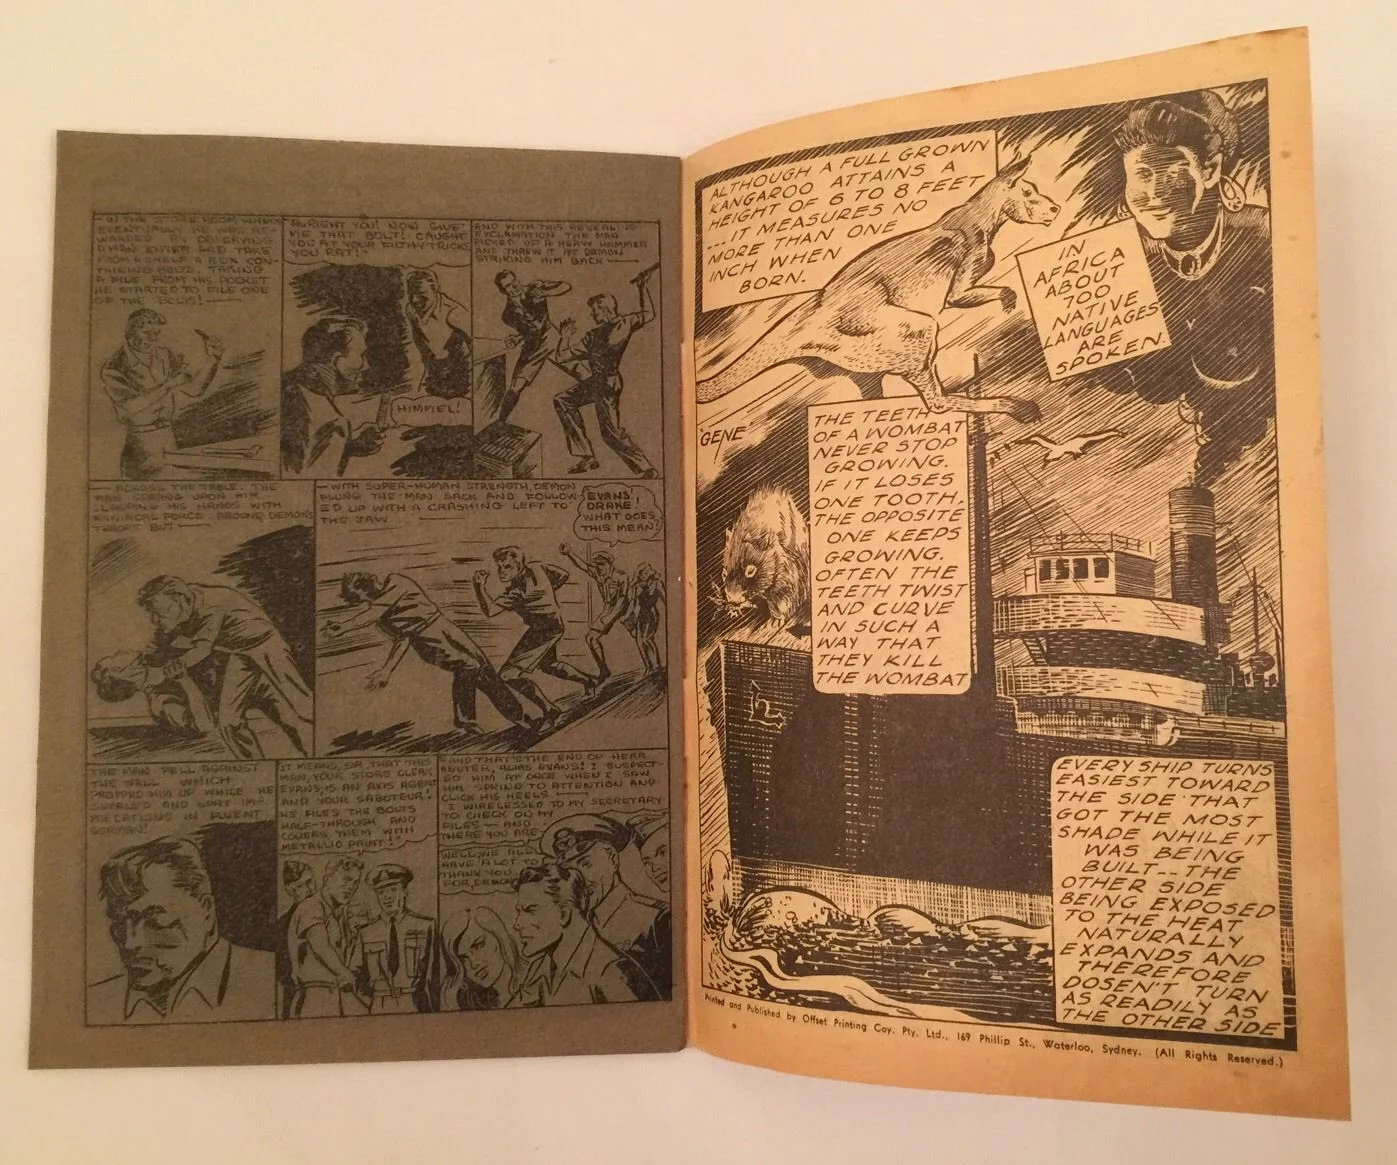 - IN THE STORE ROOM WHERE
EVENTUALLY HE WAS RE-
WARDED BY OBSERVING
A MAN ENTER AND TAKE
FROM A SHELF A BOX CON-
TAINING BOLTS. TAKING
A FILE FROM HIS POCKET
HE STARTED TO FILE ONE
OF THE BOLTS! —
ALRIGHT YOU! NOW GIVE
ME THAT BOLT! CAUGHT
YOU AT YOUR FILTHY TRICKS
YOU RAT!"
HIMMEL!
AND WITH THIS REVEALING
EXCLAMATION THE MAN
PICKED UP A HEAVY HAMMER
AND THREW IT AT DEMON
STRIKING HIM BACK —
- ACROSS THE TABLE. THE
MAN SPRANG UPON HIM
CLASPING HIS HANDS WITH
MANIACAL FORCE AROUND DEMON'S
THROAT BUT —
- WITH SUPER-HUMAN STRENGTH, DEMON
FLUNG THE MAN BACK AND FOLLOW-
ED UP WITH A CRASHING LEFT TO
THE JAW —
EVANS!
DRAKE!
WHAT DOES
THIS MEAN?
THE MAN FELL AGAINST
THE WALL WHICH
PROPPED HIM UP WHILE HE
SNARLED AND SPAT IM-
PRECATIONS IN FLUENT
GERMAN!
IT MEANS, SIR, THAT THIS
MAN, YOUR STORE CLERK
EVANS, IS AN AXIS AGENT
AND YOUR SABOTEUR!
HE FILES THE BOLTS
HALF-THROUGH AND
COVERS THEM WITH
METALLIC PAINT!"
AND THAT'S THE END OF HERR
REUTER, ALIAS EVANS! I SUSPECT-
ED HIM AT ONCE WHEN I SAW
HIM SPRING TO ATTENTION AND
CLICK HIS HEELS —
I WIRELESSED TO MY SECRETARY
TO CHECK ON MY
FILES — AND
THERE YOU ARE
WELL, WE ALL
HAVE A LOT TO
THANK YOU
FOR, DEMON
ALTHOUGH A FULL GROWN
KANGAROO ATTAINS A
HEIGHT OF 6 TO 8 FEET
... IT MEASURES NO
MORE THAN ONE
INCH WHEN
BORN.
IN
AFRICA
ABOUT
700
NATIVE
LANGUAGES
ARE
SPOKEN.
'GENE'
THE TEETH
OF A WOMBAT
NEVER STOP
GROWING.
IF IT LOSES
ONE TOOTH,
THE OPPOSITE
ONE KEEPS
GROWING.
OFTEN THE
TEETH TWIST
AND CURVE
IN SUCH A
WAY THAT
THEY KILL
THE WOMBAT
EVERY SHIP TURNS
EASIEST TOWARD
THE SIDE THAT
GOT THE MOST
SHADE WHILE IT
WAS BEING
BUILT -- THE
OTHER SIDE
BEING EXPOSED
TO THE HEAT
NATURALLY
EXPANDS AND
THEREFORE
DOSEN'T TURN
AS READILY AS
THE OTHER SIDE
Printed and Published by Offset Printing Coy. Pty. Ltd., 169 Phillip St., Waterloo, Sydney. (All Rights Reserved.)